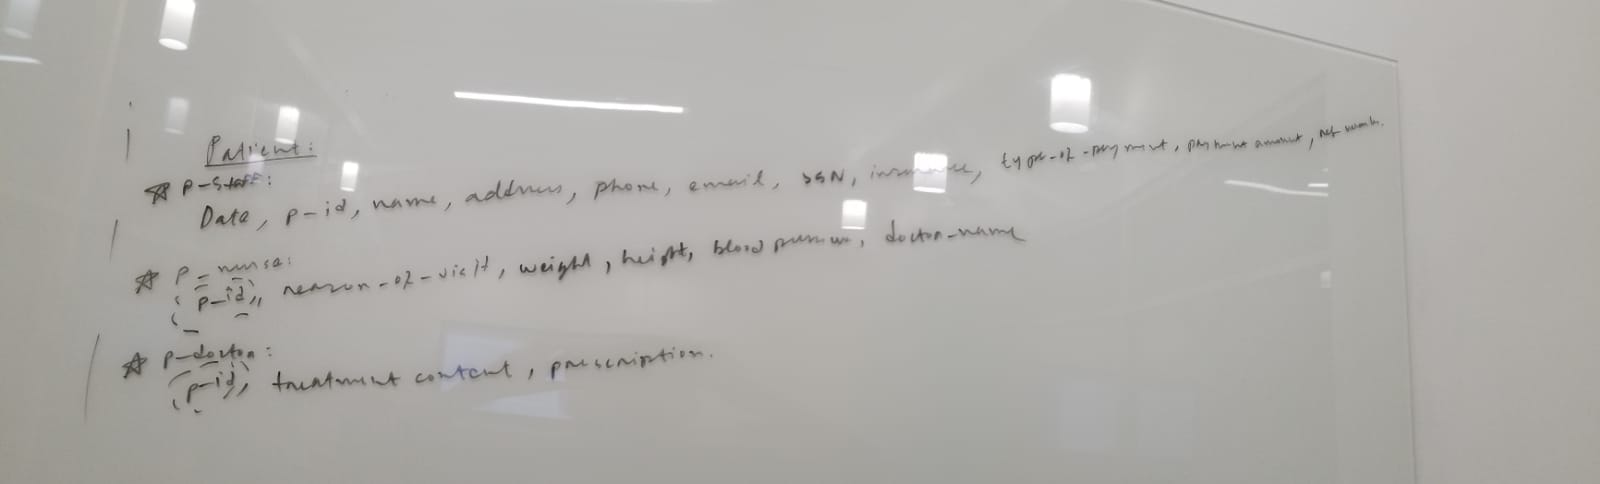 Patient:
☆ P-Staff:
Date, p-id, name, address, phone, email, SSN, insurance, type-of-payment, payment amount,
☆ P-nurse:
p-id, reason-of-visit, weight, height, blood pressure, doctor-name
☆ P-doctor:
p-id, treatment content, prescription.